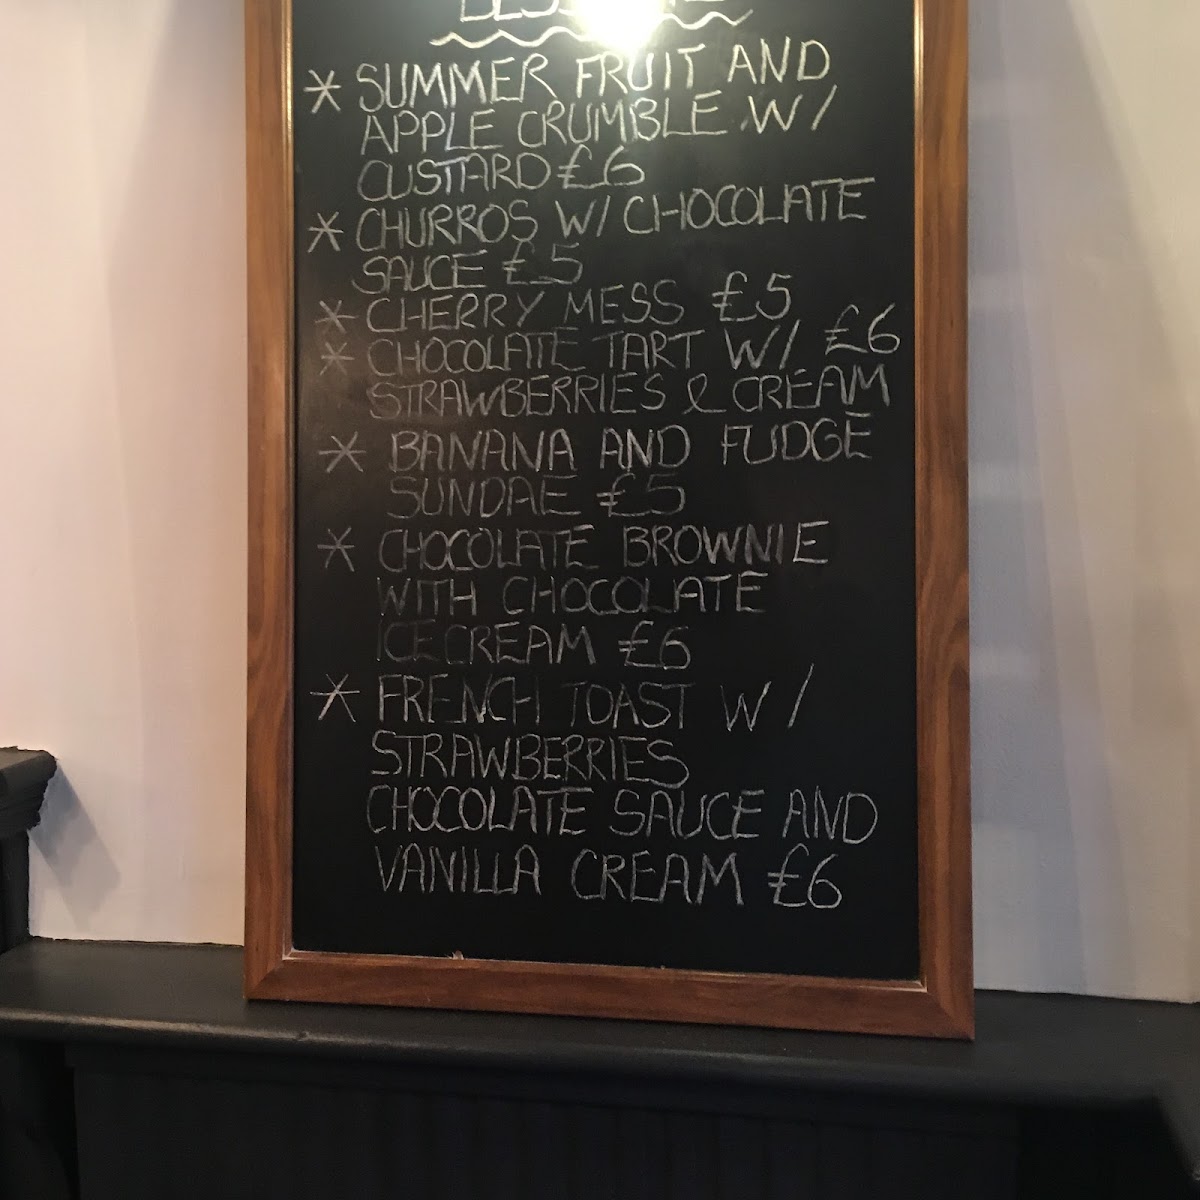 * SUMMER FRUIT AND
APPLE CRUMBLE W/
CUSTARD £6
* CHURROS W/ CHOCOLATE
SAUCE £5
* CHERRY MESS £5
* CHOCOLATE TART W/ £6
STRAWBERRIES & CREAM
* BANANA AND FUDGE
SUNDAE £5
* CHOCOLATE BROWNIE
WITH CHOCOLATE
ICE CREAM £6
* FRENCH TOAST W/
STRAWBERRIES
CHOCOLATE SAUCE AND
VANILLA CREAM £6